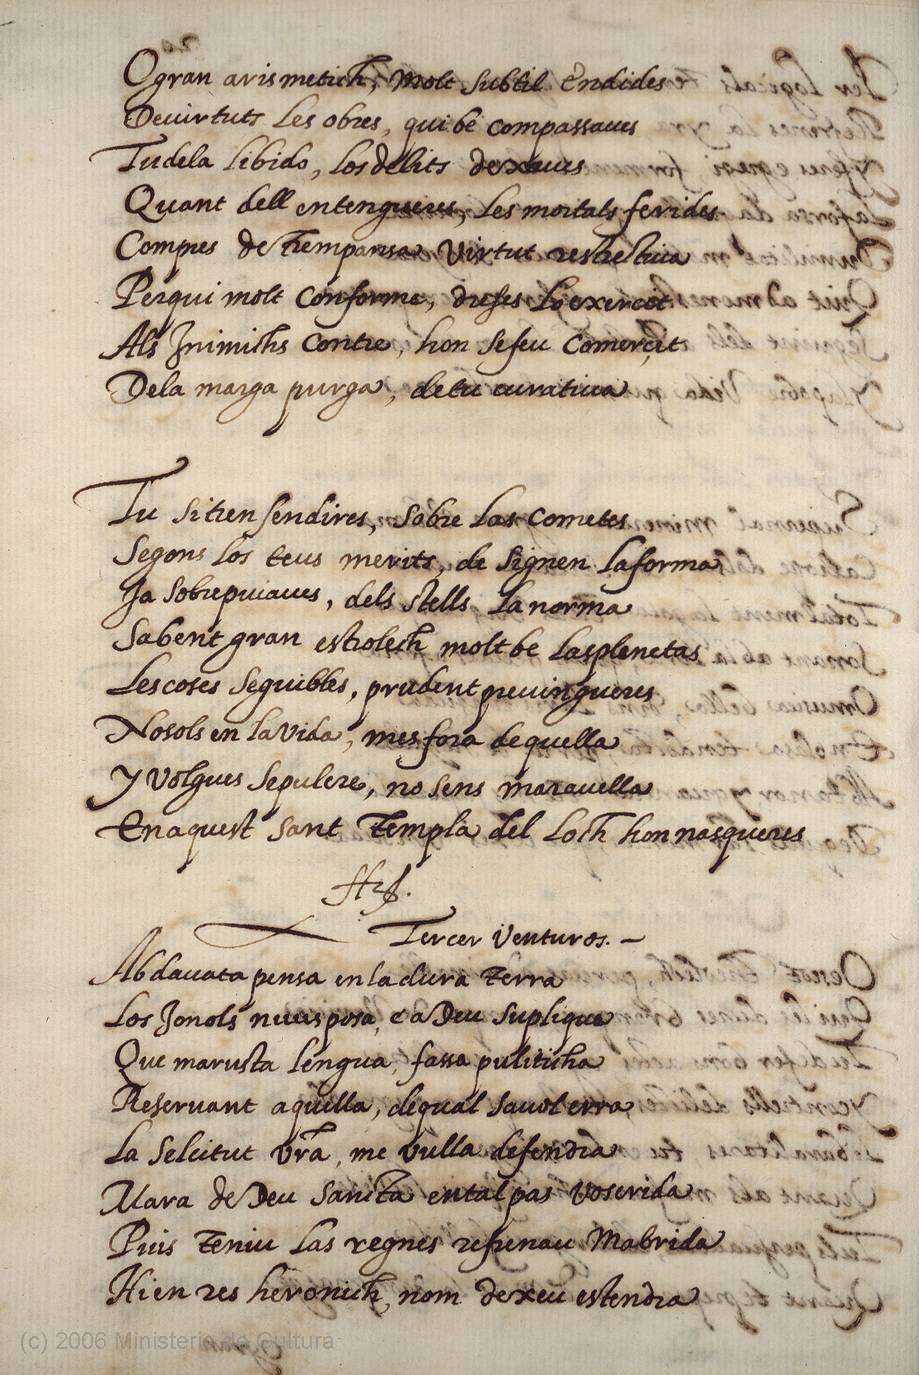 O gran arismetich, molt subtil Endides
De virtuts les obres, qui be compassaves
Tu de la libido, los delits dexaves
Quant dell entengueres, les mortals ferides
Compres de tempansa virtut restrectiva
Perqui molt conforme, dreses lo exercet
Als Inimichs contre, hon se feu comerçit
De la marga purga, de tu curativa
Tu sitien sendires, sobre las cometes
Segons los teus merits, de signen la forma
Ja sobrepuiaves, dels stells la norma
Sabent gran estrolech molt be las plenetas
Les coses seguibles, prudent previngueres
No sols en la vida, mes fora de quella
Y volgues sepulcre, no sens maravella
En aquest sant Templa del Loch hon nasqueres
Tercer Venturos.
Ab davata pensa en la dura terra
Los Jonols nuus posa, e a Deu suplique
Que marusta lengua, fassa puliticha
Reservant aquella, de qual sevol erra
La Selcitut vra, me vulla defendra
Mara de Deu Sancta en tal pas vos crida
Puis teniu las regnes refrenau Ma brida
Hi en res heronich, nom dexeu estendra
(c) 2006 Ministerio de Cultura